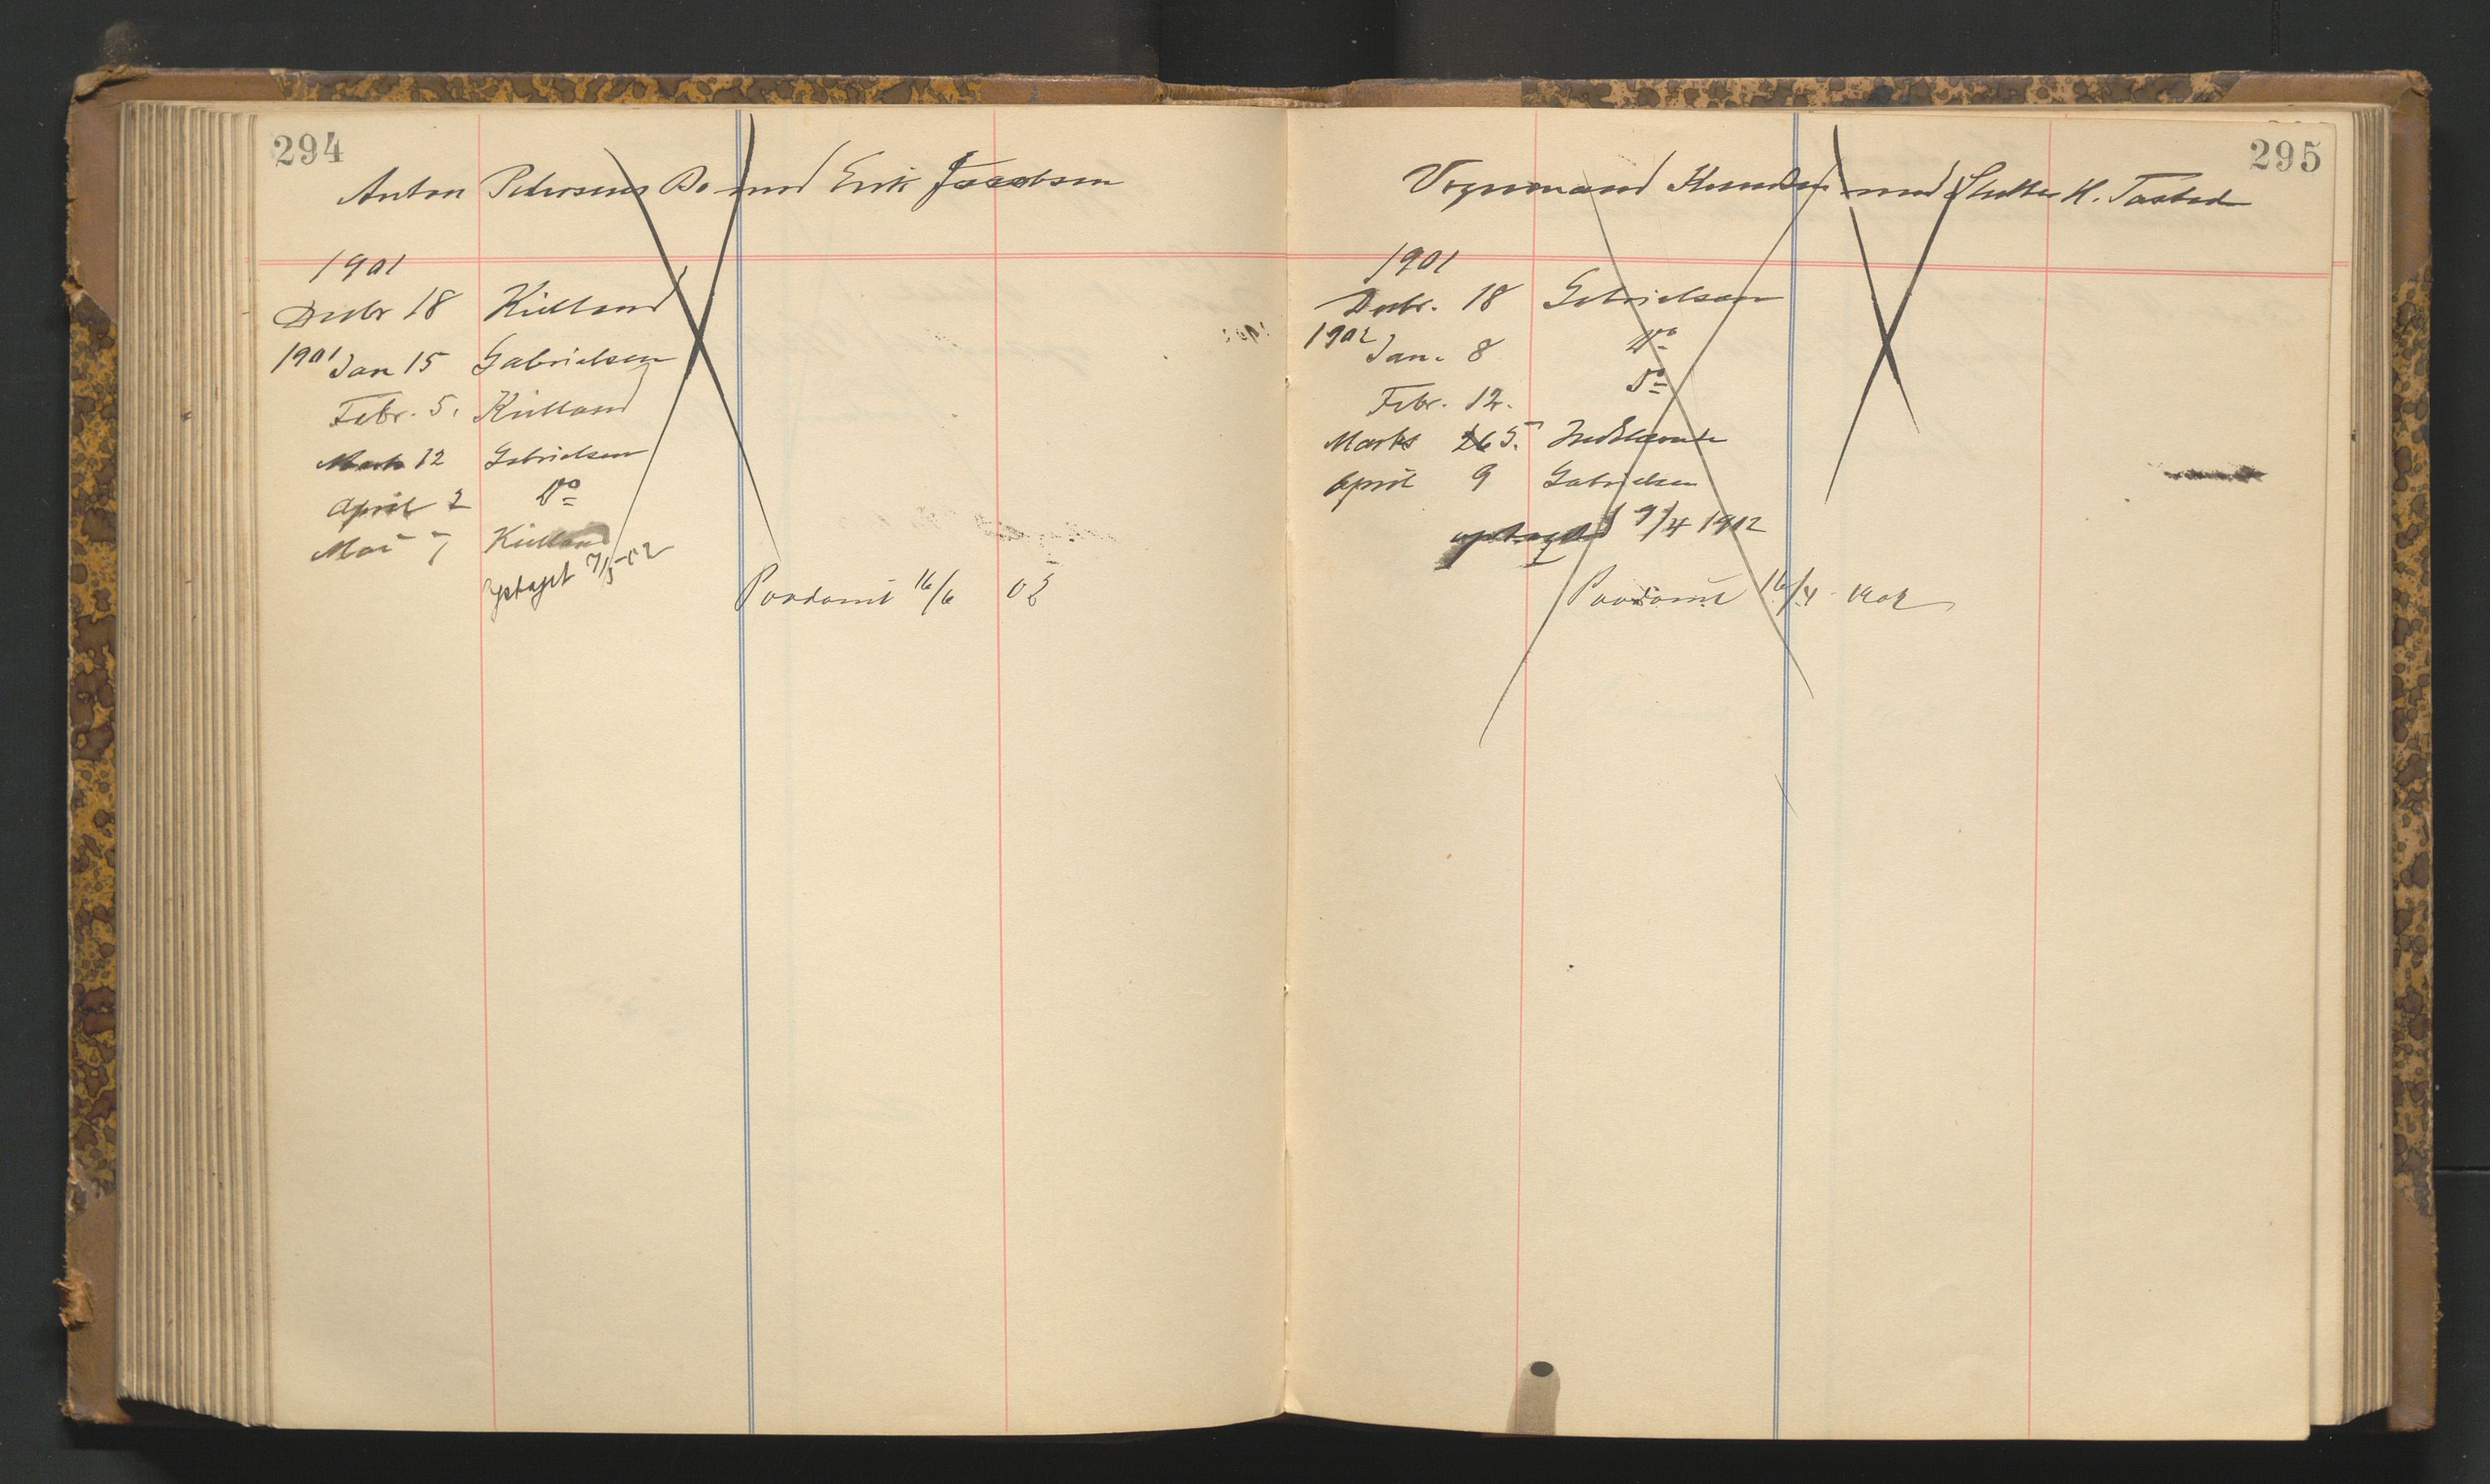 294
Anton Petersens Bo mod Erik Jacobsen
1901
Decbr 18 Kielland
1901 Jan 15 Gabrielsen
Febr. 5. Kielland
Marts 12 Gabrielsen
April 2 Do
Mai 7 Kielland
Optaget 7/5 02
Paadømt 16/6 02
295
Vognmand Knudsen mod H. Tastad
1901
Decbr. 18 Gabrielsen
1902 Jan. 8 Do
Febr. 12. Do
Marts 26 5. Indstevnte
April 9 Gabrielsen
optaget 9/4 1902
Paadømt 16/4 1902